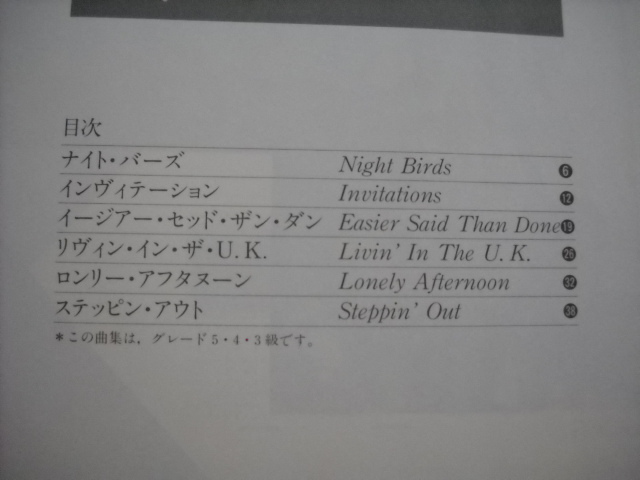 目次
ナイト・バーズ Night Birds 6
インヴィテーション Invitations 12
イージアー・セッド・ザン・ダン Easier Said Than Done 19
リヴィン・イン・ザ・U.K. Livin' In The U.K. 26
ロンリー・アフタヌーン Lonely Afternoon 32
ステッピン・アウト Steppin' Out 38
*この曲集は，グレード5・4・3級です。